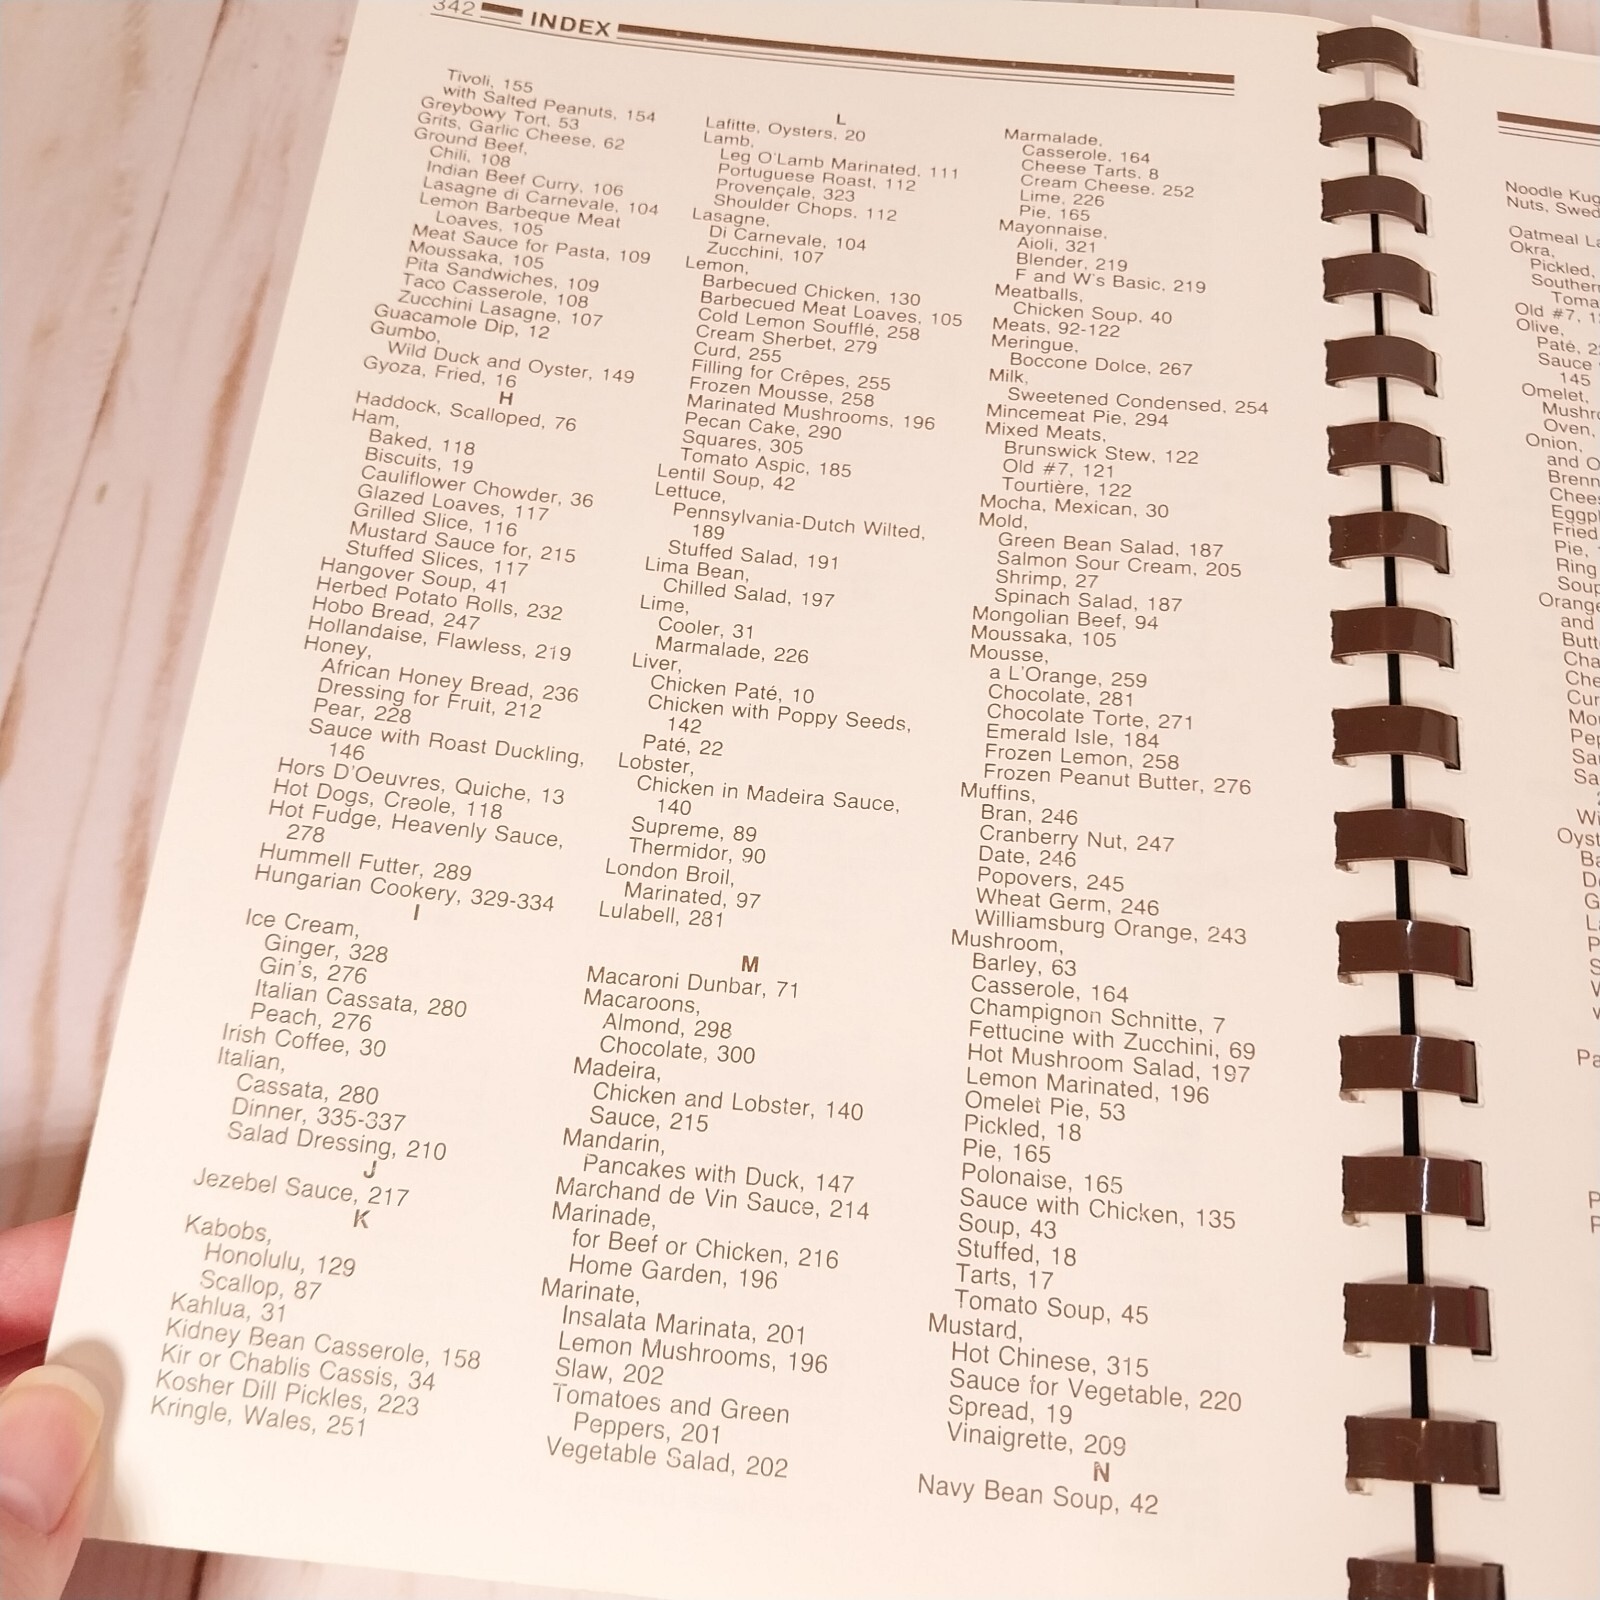 342 INDEX
Tivoli, 155
with Salted Peanuts, 154
Greybowy Tort, 53
Grits, Garlic Cheese, 62
Ground Beef,
Chili, 108
Indian Beef Curry, 106
Lasagne di Carnevale, 104
Lemon Barbeque Meat
Loaves, 105
Meat Sauce for Pasta, 109
Moussaka, 105
Pita Sandwiches, 109
Taco Casserole, 108
Zucchini Lasagne, 107
Guacamole Dip, 12
Gumbo,
Wild Duck and Oyster, 149
Gyoza, Fried, 16
H
Haddock, Scalloped, 76
Ham,
Baked, 118
Biscuits, 19
Cauliflower Chowder, 36
Glazed Loaves, 117
Grilled Slice, 116
Mustard Sauce for, 215
Stuffed Slices, 117
Hangover Soup, 41
Herbed Potato Rolls, 232
Hobo Bread, 247
Hollandaise, Flawless, 219
Honey,
African Honey Bread, 236
Dressing for Fruit, 212
Pear, 228
Sauce with Roast Duckling,
146
Hors D'Oeuvres, Quiche, 13
Hot Dogs, Creole, 118
Hot Fudge, Heavenly Sauce,
278
Hummell Futter, 289
Hungarian Cookery, 329-334
I
Ice Cream,
Ginger, 328
Gin's, 276
Italian Cassata, 280
Peach, 276
Irish Coffee, 30
Italian,
Cassata, 280
Dinner, 335-337
Salad Dressing, 210
J
Jezebel Sauce, 217
K
Kabobs,
Honolulu, 129
Scallop, 87
Kahlua, 31
Kidney Bean Casserole, 158
Kir or Chablis Cassis, 34
Kosher Dill Pickles, 223
Kringle, Wales, 251
L
Lafitte, Oysters, 20
Lamb,
Leg O'Lamb Marinated, 111
Portuguese Roast, 112
Provençale, 323
Shoulder Chops, 112
Lasagne,
Di Carnevale, 104
Zucchini, 107
Lemon,
Barbecued Chicken, 130
Barbecued Meat Loaves, 105
Cold Lemon Soufflé, 258
Cream Sherbet, 279
Curd, 255
Filling for Crêpes, 255
Frozen Mousse, 258
Marinated Mushrooms, 196
Pecan Cake, 290
Squares, 305
Tomato Aspic, 185
Lentil Soup, 42
Lettuce,
Pennsylvania-Dutch Wilted,
189
Stuffed Salad, 191
Lima Bean,
Chilled Salad, 197
Lime,
Cooler, 31
Marmalade, 226
Liver,
Chicken Paté, 10
Chicken with Poppy Seeds,
142
Paté, 22
Lobster,
Chicken in Madeira Sauce,
140
Supreme, 89
Thermidor, 90
London Broil,
Marinated, 97
Lulabell, 281
M
Macaroni Dunbar, 71
Macaroons,
Almond, 298
Chocolate, 300
Madeira,
Chicken and Lobster, 140
Sauce, 215
Mandarin,
Pancakes with Duck, 147
Marchand de Vin Sauce, 214
Marinade,
for Beef or Chicken, 216
Home Garden, 196
Marinate,
Insalata Marinata, 201
Lemon Mushrooms, 196
Slaw, 202
Tomatoes and Green
Peppers, 201
Vegetable Salad, 202
Marmalade,
Casserole, 164
Cheese Tarts, 8
Cream Cheese, 252
Lime, 226
Pie, 165
Mayonnaise,
Aioli, 321
Blender, 219
F and W's Basic, 219
Meatballs,
Chicken Soup, 40
Meats, 92-122
Meringue,
Boccone Dolce, 267
Milk,
Sweetened Condensed, 254
Mincemeat Pie, 294
Mixed Meats,
Brunswick Stew, 122
Old #7, 121
Tourtière, 122
Mocha, Mexican, 30
Mold,
Green Bean Salad, 187
Salmon Sour Cream, 205
Shrimp, 27
Spinach Salad, 187
Mongolian Beef, 94
Moussaka, 105
Mousse,
a L'Orange, 259
Chocolate, 281
Chocolate Torte, 271
Emerald Isle, 184
Frozen Lemon, 258
Frozen Peanut Butter, 276
Muffins,
Bran, 246
Cranberry Nut, 247
Date, 246
Popovers, 245
Wheat Germ, 246
Williamsburg Orange, 243
Mushroom,
Barley, 63
Casserole, 164
Champignon Schnitte, 7
Fettucine with Zucchini, 69
Hot Mushroom Salad, 197
Lemon Marinated, 196
Omelet Pie, 53
Pickled, 18
Pie, 165
Polonaise, 165
Sauce with Chicken, 135
Soup, 43
Stuffed, 18
Tarts, 17
Tomato Soup, 45
Mustard,
Hot Chinese, 315
Sauce for Vegetable, 220
Spread, 19
Vinaigrette, 209
N
Navy Bean Soup, 42
Noodle
Nuts,
Oatmeal
Okra,
Pickled,
Old #7,
Olive,
Paté,
Sauce
145
Omelet,
Oven,
Onion,
and
Fried
Pie,
Ring
and